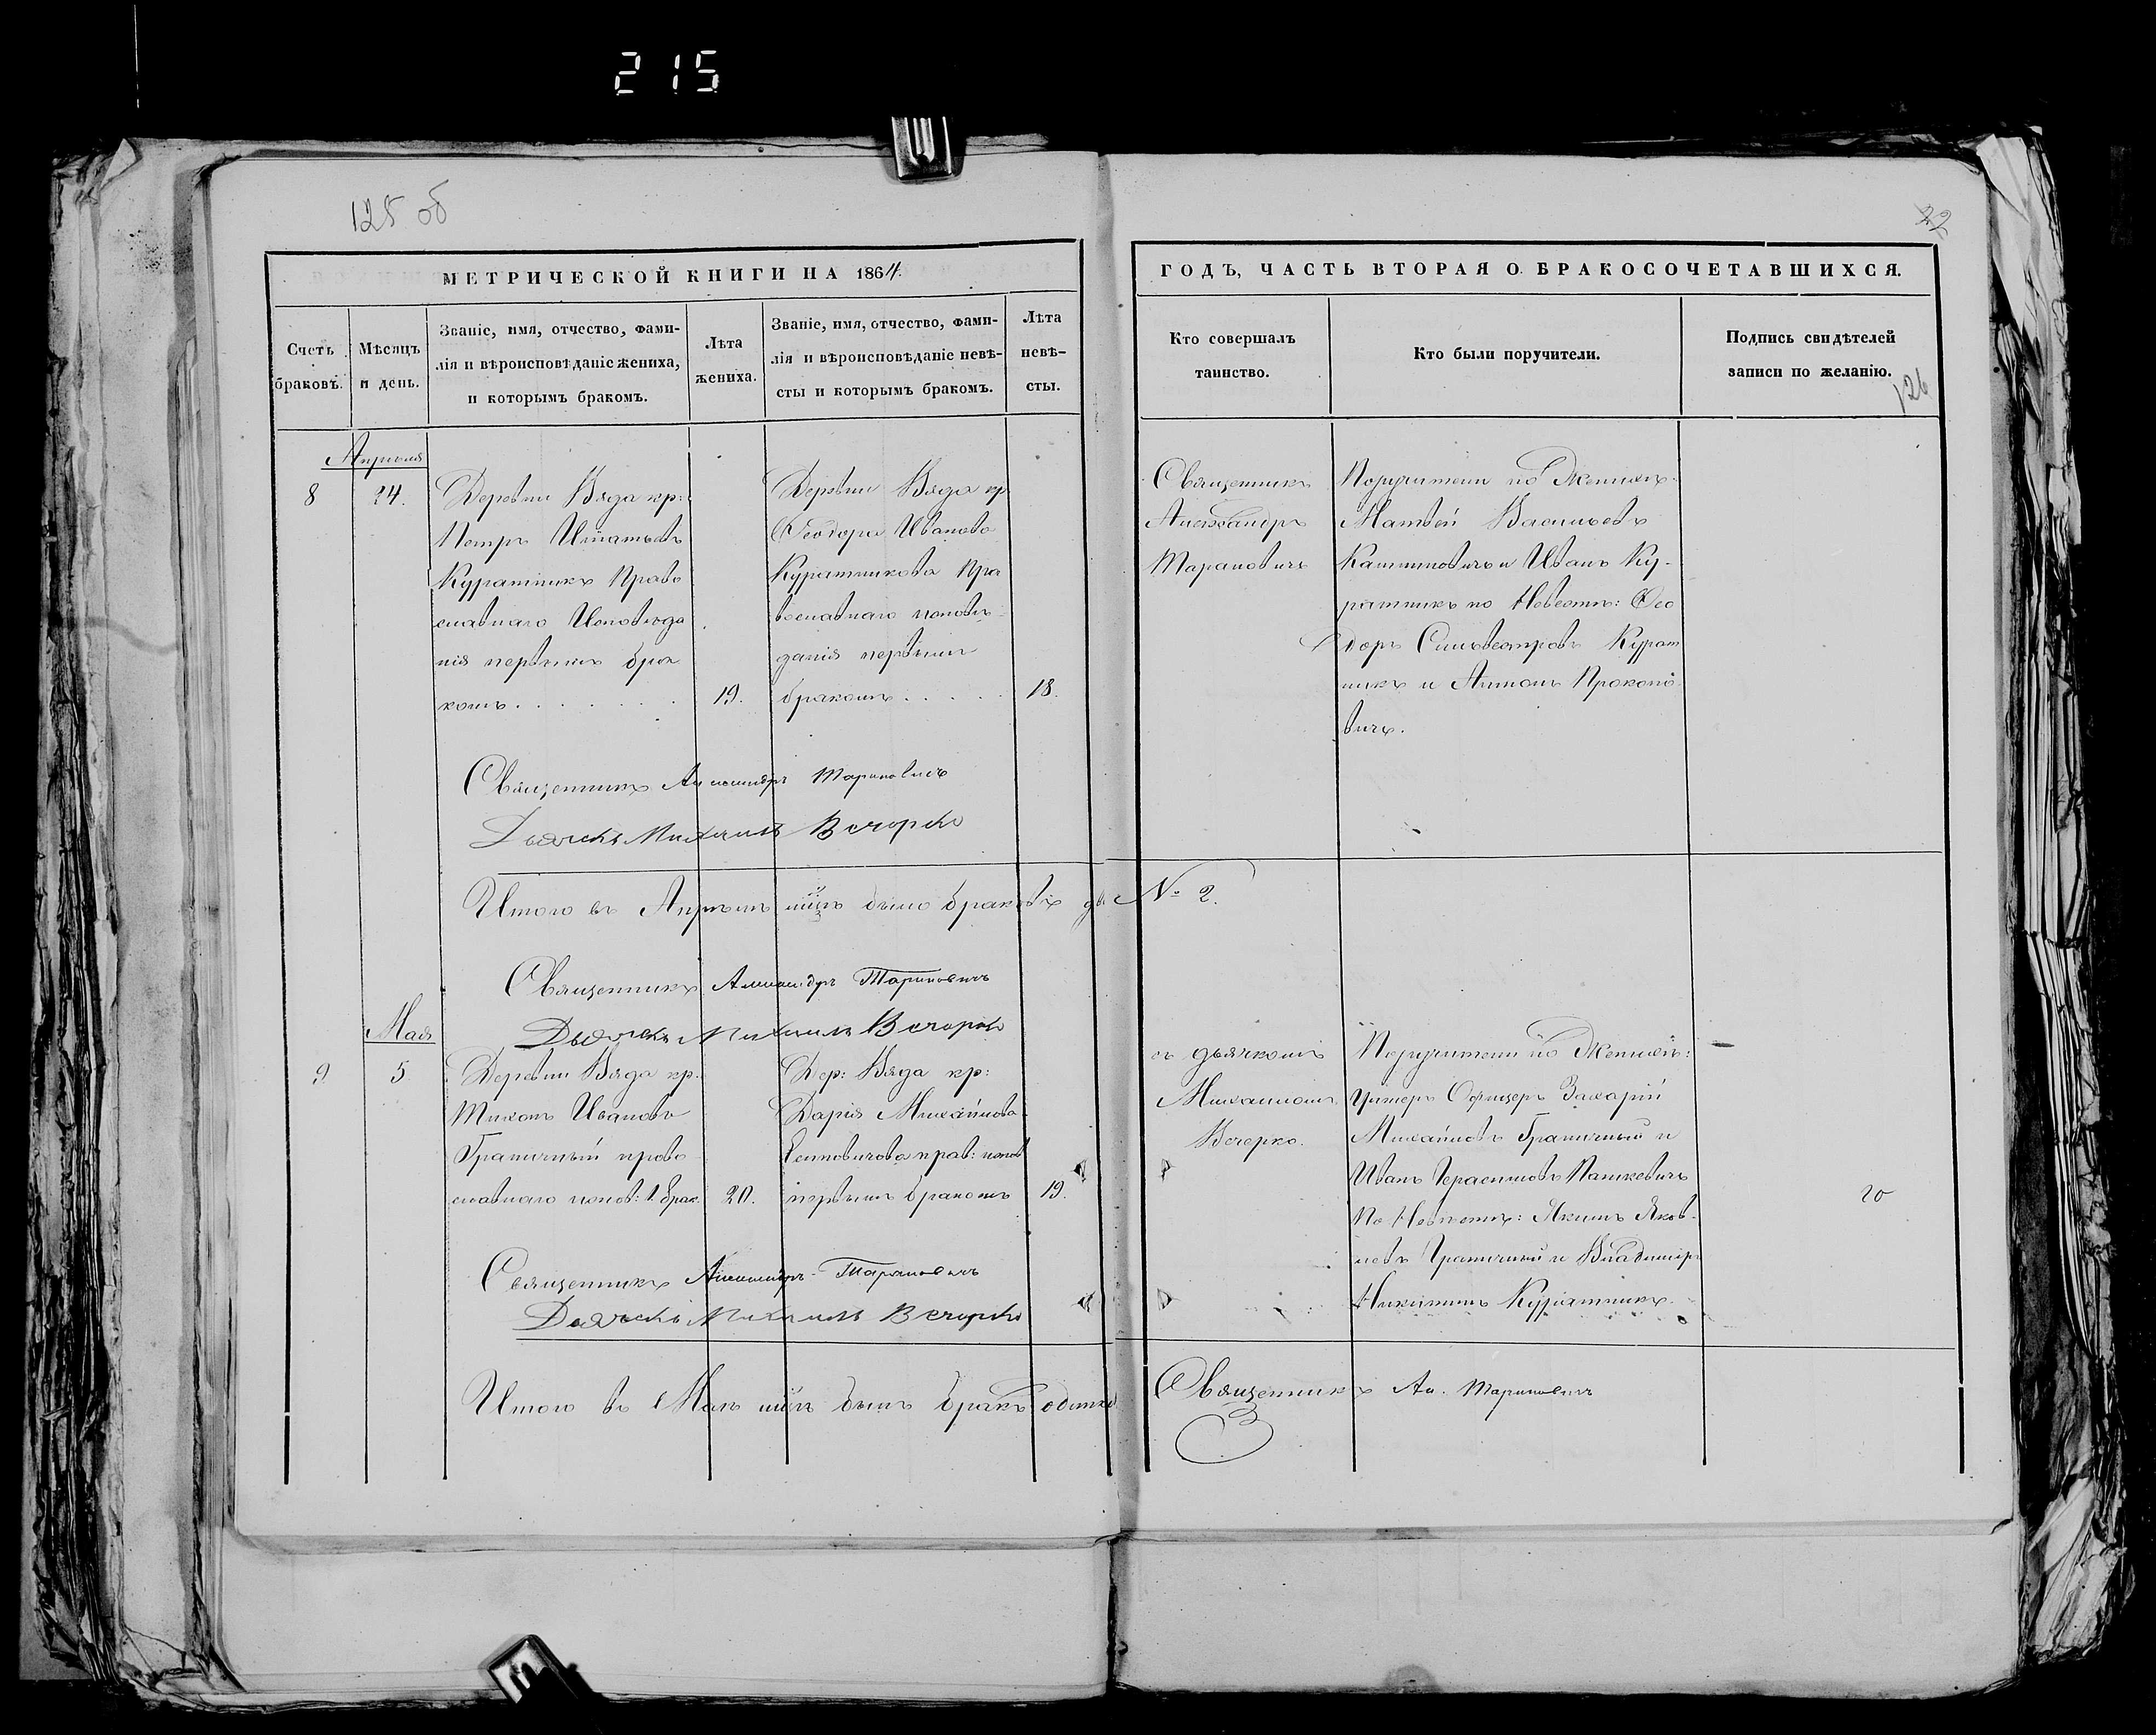 215
125 об
22
МЕТРИЧЕСКОЙ КНИГИ НА 1864.
ГОДЪ, ЧАСТЬ ВТОРАЯ О БРАКОСОЧЕТАВШИХСЯ.
Счетъ
браковъ.
Мѣсяцъ
и день.
Званіе, имя, отчество, фами-
лія и вѣроисповѣданіе жениха,
и которымъ бракомъ.
Лѣта
жениха.
Званіе, имя, отчество, фами-
лія и вѣроисповѣданіе невѣ-
сты и которымъ бракомъ.
Лѣта
невѣ-
сты.
Кто совершалъ
таинство.
Кто были поручители.
Подпись свидѣтелей
записи по желанію.
126
Апрѣля
8
24.
Деревни Вяда кр:
Петръ Игнатьевъ
Куратникъ Право
славнаго Исповѣда
нія первымъ бра
комъ
19.
Деревни Вяда кр
Ѳеодора Иванова
Куратникова Пра
вославнаго исповѣ
данія первымъ
бракомъ
18.
Священникъ
Александръ
Тарановичъ
Поручители по Женихѣ
Матвей Васильевъ
Калиновичъ и Иванъ Ку-
ратникъ по Невестѣ: Ѳео
доръ Сильвестровъ Курат
никъ и Антонъ Прокопо
вичъ.
Священникъ Александръ Тарановичъ
Дьячекъ Михаилъ Вечорко
Итого въ Апрѣлѣ м͠цѣ было браковъ два № 2.
Священникъ Александръ Тарановичъ
Дьячекъ Михаилъ Вечорко
Мая
9
5
Деревни Вяда кр:
Тихонъ Ивановъ
Граничный право
славнаго испов: 1. брак.
20.
Дер: Вяда кр:
Дарія Михайлова
прав: испов
первымъ бракомъ
19.
съ дьячкомъ
Михаиломъ
Вечерко.
Поручители по Женихѣ:
Унтеръ Офицеръ Захарій
Михайловъ Граничный и
Иванъ Герасимовъ Пашкевичъ
По Невѣстѣ: Якимъ Яков-
левъ Граничный и Владиміръ
Никитинъ Куратникъ.
20
Священникъ Александръ Тарановичъ
Дьячекъ Михаилъ Вечорко
Итого въ Маѣ м͠цѣ былъ бракъ одинъ
Священникъ Ал. Тарановичъ